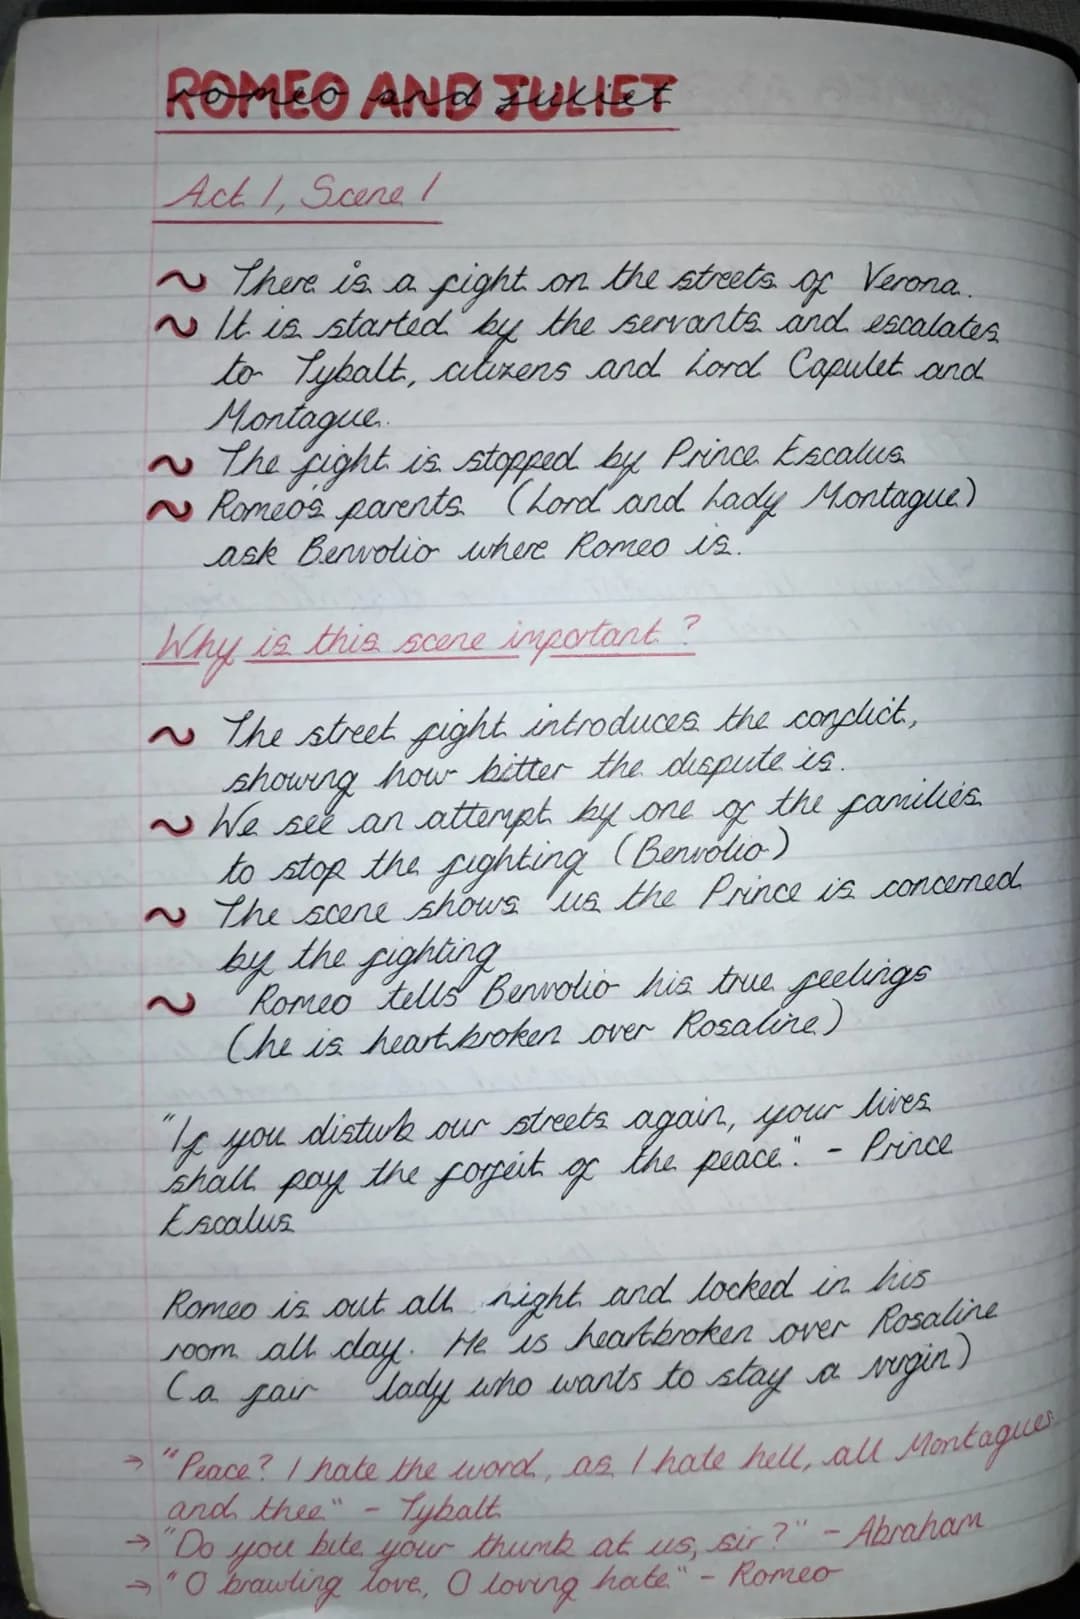 ROMEO AND JULIET
romeo and juliet
Act 1, Scene 1
~ There is a fight on the streets of Verona.
~ It is started by the servants and escalates
to Tybalt, citizens and Lord Capulet and
Montague.
~ The fight is stopped by Prince Escalus
~ Romeo's parents (Lord and Lady Montague)
ask Benvolio where Romeo is.
Why is this scene important?
~ The street fight introduces the conflict,
showing how bitter the dispute is.
~ We see an attempt by one of the families
to stop the fighting (Benvolio)
~ The scene shows us the Prince is concerned
by the fighting
~ Romeo tells Benvolio his true feelings
(he is heartbroken over Rosaline)
"If you disturb our streets again, your lives
shall pay the forfeit of the peace". - Prince
Escalus
Romeo is out all night and locked in his
room all day. He is heartbroken over Rosaline
(a fair lady who wants to stay a virgin)
→ "Peace? I hate the word, as I hate hell, all Montagues
and thee" - Tybalt
→ "Do you bite your thumb at us, sir?" - Abraham
→ "O brawling love, O loving hate" - Romeo